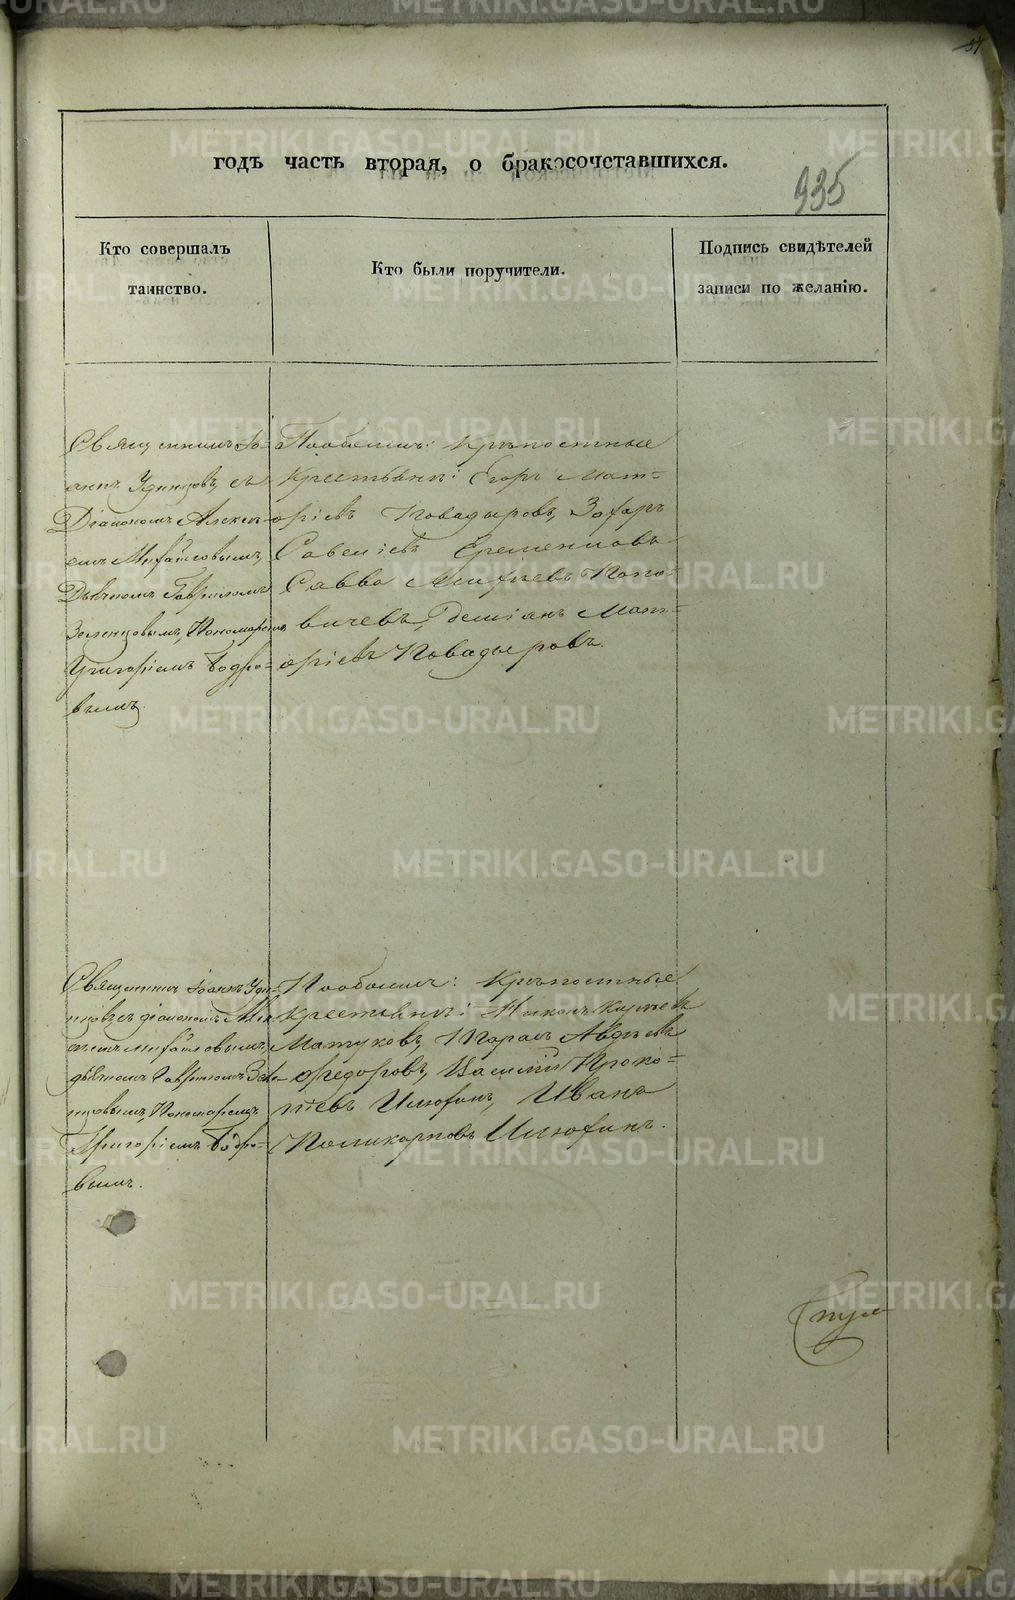 годъ часть вторая, о бракосочетавшихся.
935
Кто совершалъ
таинство.
Кто были поручители.
Подпись свидѣтелей
записи по желанію.
Священникъ Іо-
аннъ Удинцовъ, съ
Діакономъ Алексѣ-
емъ Михайловымъ,
Дьячкомъ Гавриломъ
Зеленцовымъ, Пономаремъ
Григоріемъ Бодро-
вымъ
Пообоимъ: Крѣпостные
Крестьяне: Егоръ Мат-
ѳіевъ Повадыровъ, Захаръ
Савеліевъ Еременковъ
Савва
вичевъ, Деміанъ Мат-
ѳіевъ Повадыровъ.
Священникъ Іоаннъ Уди-
нцовъ съ діакономъ Алек
сѣемъ Михайловымъ,
дьячкомъ Гавриломъ Зеле-
нцовымъ, Пономаремъ
Григоріемъ Бодро-
вымъ.
Пообоимъ: Крѣпостные
Крестьяне:
Матуковъ, Авдѣевъ
Ѳедоровъ, Василій Проко-
піевъ Илюфинъ, Иванъ
Поликарповъ Илюфинъ.
METRIKI.GASO-URAL.RU